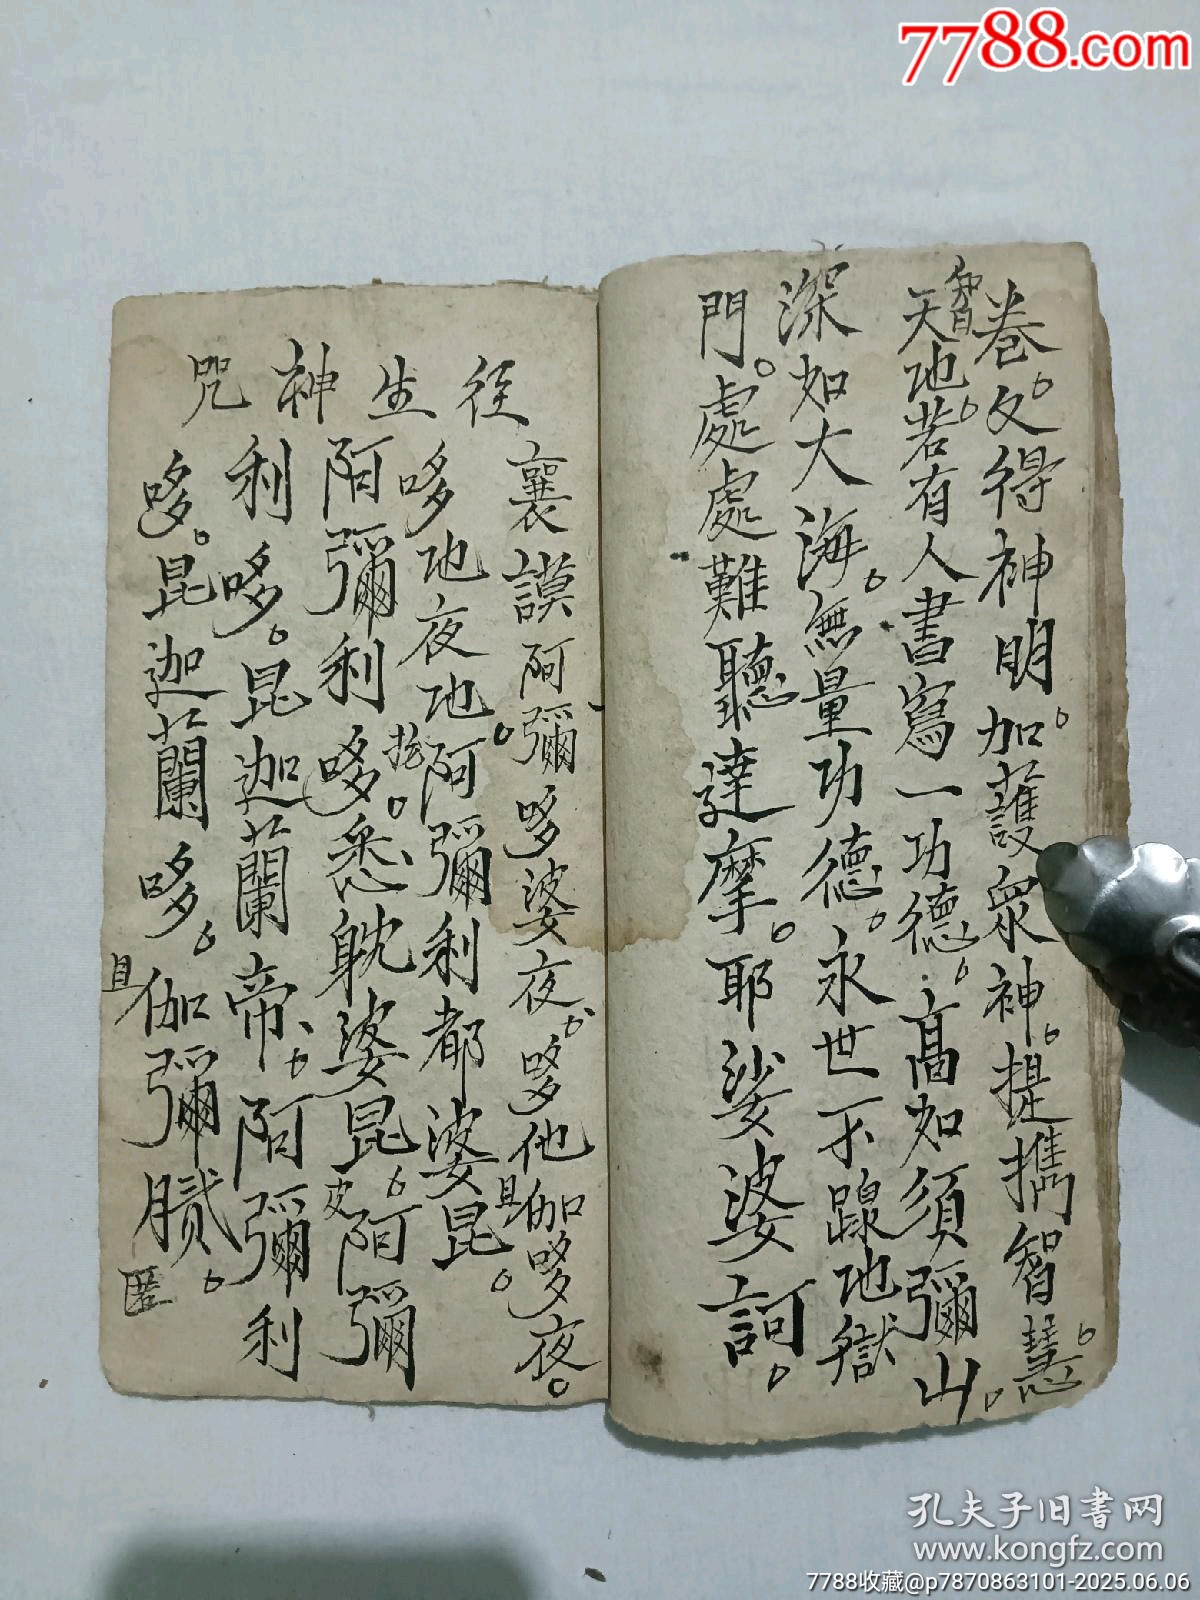 7788.com
卷又得神明加護眾神提攜智慧
智
天地若有人書寫一功德高如須彌山
深如大海無量功德永世不踉地獄
門處處難聽達摩耶娑婆訶
往生神咒
襄謨阿彌哆婆夜哆他伽哆夜
且
哆地夜地阿彌利都婆毘
陌彌利哆悉躭婆毘陌彌
皮
利哆毘迦蘭帝陌彌利
哆毘迦蘭哆伽彌膩
且
孔夫子旧书网
www.kongfz.com
7788收藏@p7870863101-2025.06.06